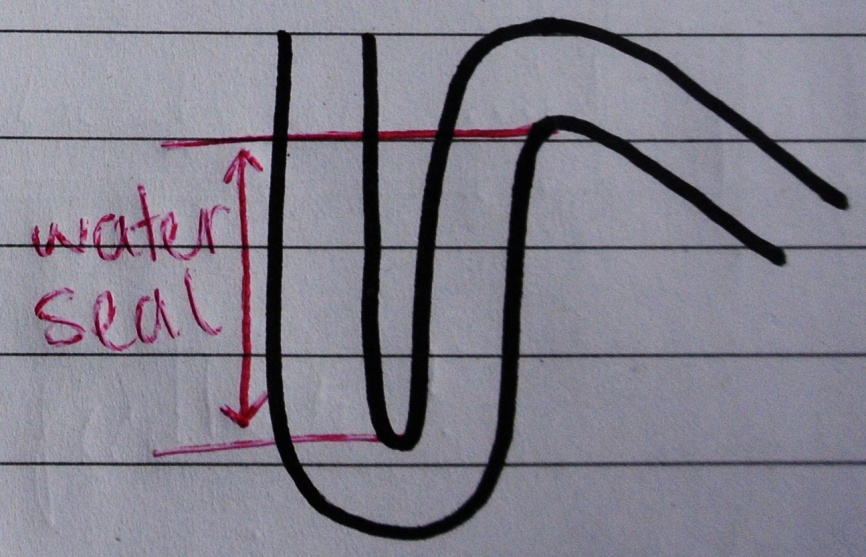 water
seal